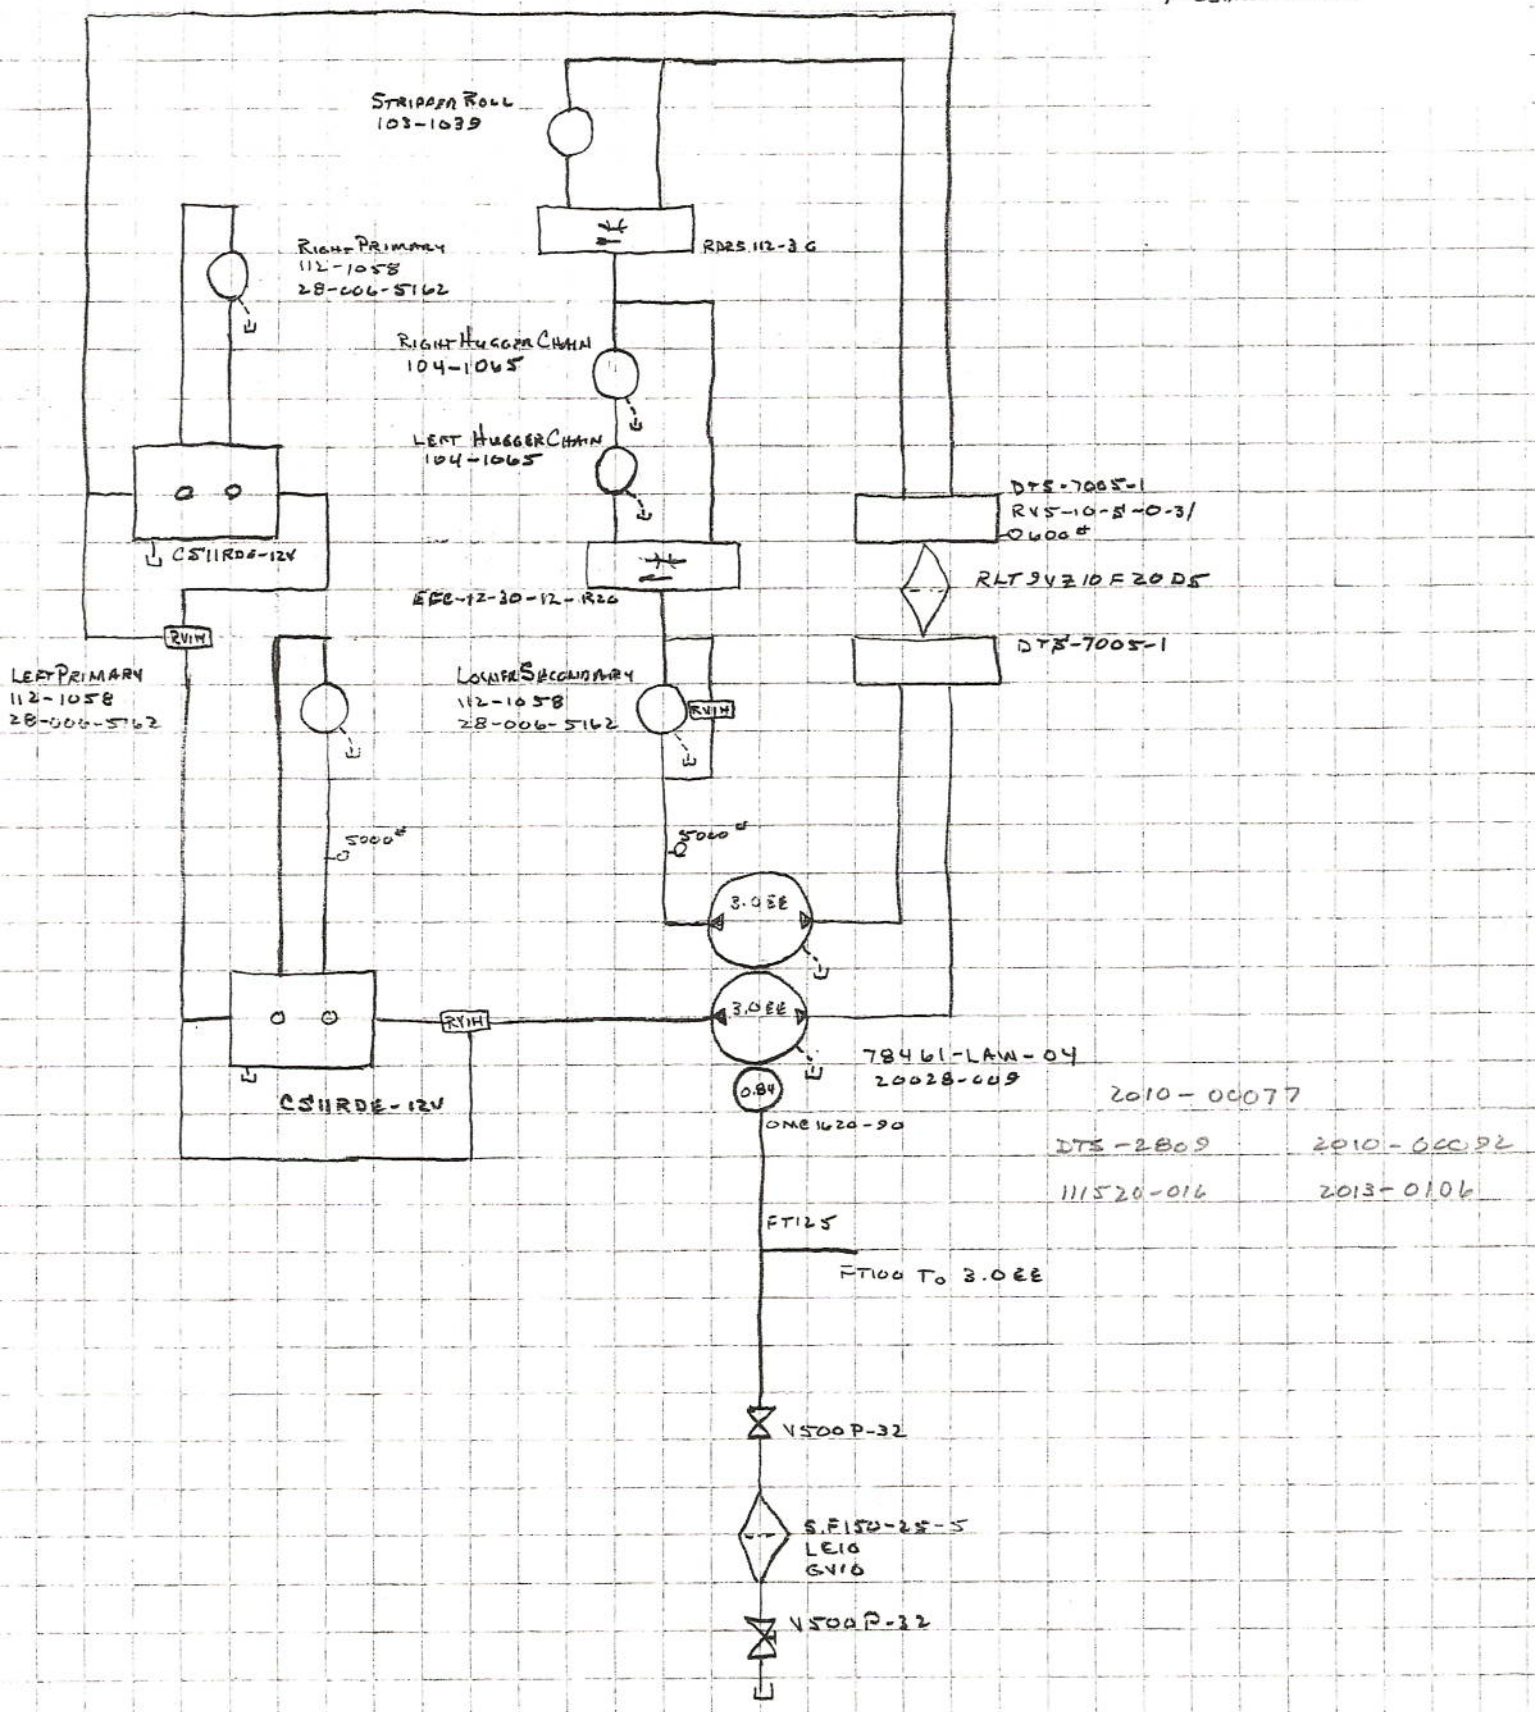 STRIPPER ROLL
103-1039
RIGHT PRIMARY
112-1058
28-006-5162
RD25.112-30
RIGHT HUGGER CHAIN
104-1065
LEFT HUGGER CHAIN
104-1065
CS11RDE-12V
EFC-12-30-12-R20
DTS-7005-1
RV5-10-S-0-3/
0600#
RLT9VZ10F20D5
DTS-7005-1
RV1H
LEFT PRIMARY
112-1058
28-006-5162
LOWER SECONDARY
112-1058
28-006-5162
RV1H
5000#
5000#
3.0EE
3.0EE
RV1H
CS11RDE-12V
78461-LAW-04
20028-009
0.84
OMC1620-90
2010-00077
DTS-2809
2010-00092
111520-016
2013-0106
FT125
FT100 TO 3.0EE
V500P-32
S.F150-25-5
LE10
GV10
V500P-32